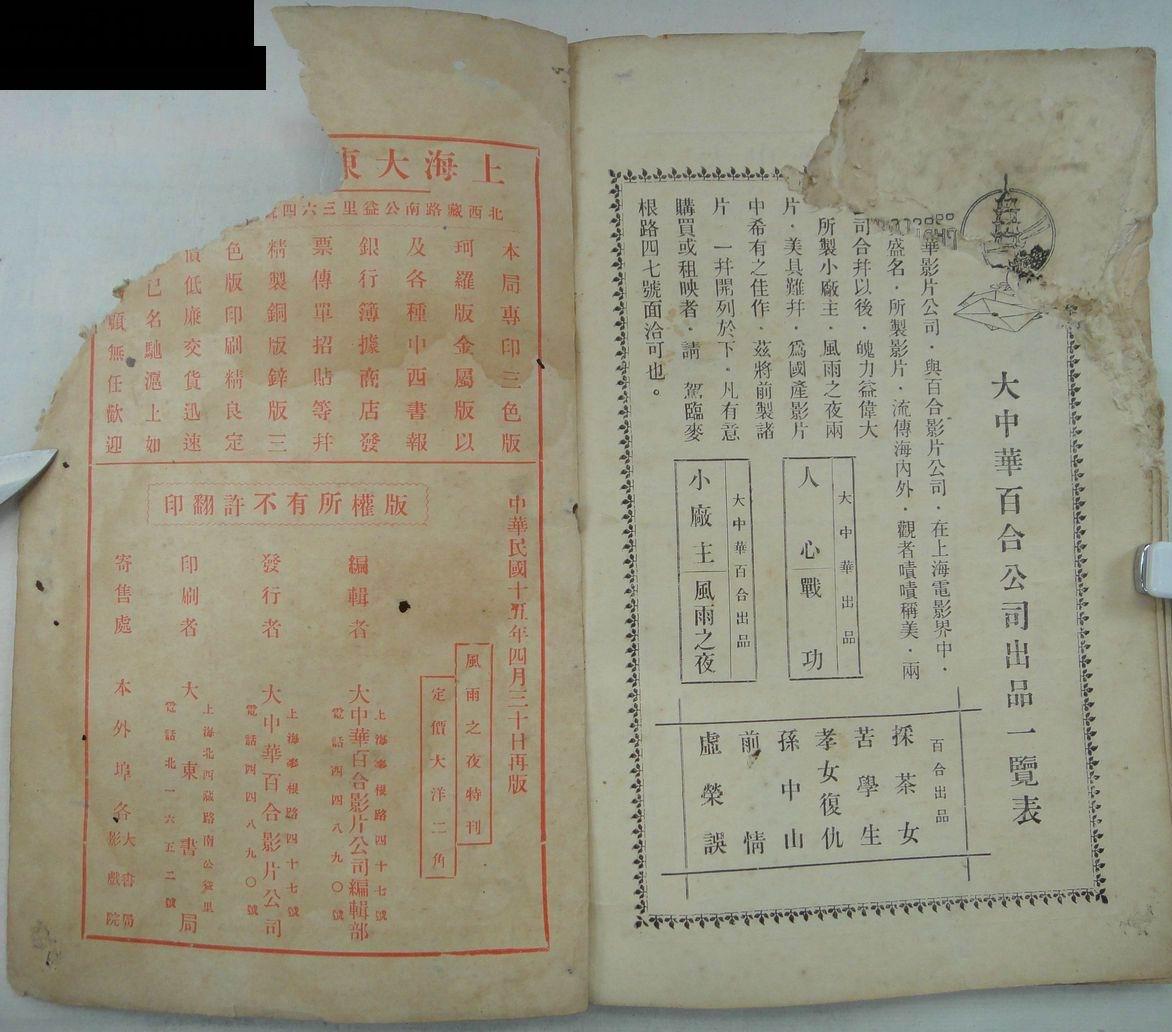 大中華百合公司出品一覽表
華影片公司·與百合影片公司·在上海電影界中·
盛名·所製影片·流傳海內外·觀者嘖嘖稱美·兩
司合幷以後·魄力益偉大
所製小廠主·風雨之夜兩
片·美具難幷·爲國產影片
中希有之佳作·茲將前製諸
片 一幷開列於下·凡有意
購買或租映者·請 駕臨麥
根路四七號面洽可也。
大中華出品
人心
戰功
大中華百合出品
小廠主
風雨之夜
百合出品
採茶女
苦學生
孝女復仇
孫中山
前情
虛榮誤
上海大東
北西藏路南公益里三六四
本局專印三色版
珂羅版金屬版以
及各種中西書報
銀行簿據商店發
票傳單招貼等幷
精製銅版鋅版三
色版印刷精良定
價低廉交貨迅速
已名馳滬上如
顧無任歡迎
版權所有不許翻印
中華民國十五年四月三十日再版
風雨之夜特刊
定價大洋二角
編輯者 大中華百合影片公司編輯部
上海麥根路四十七號
電話四四八九〇號
發行者 大中華百合影片公司
上海麥根路四十七號
電話四四八九〇號
印刷者 大東書局
上海北西藏路南公益里
電話北一六五二號
寄售處 本外埠各大書局影戲院